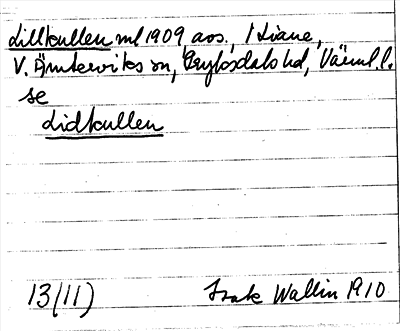 Lillkullen ml 1909 avs., 1 Liane,
V. Ämterviks sn, Fryksdals hd, Värml. l.
se
Lidkullen
13(11) Isak Wallin 1910